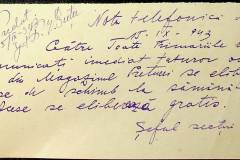 Notă telefonică
15. IX - 942
Către Toate Primăriile
comunicați imediat tuturor
din Magazinul Preturei se elib
de schimb la sămînț
se eliberează gratis.
Șeful secției